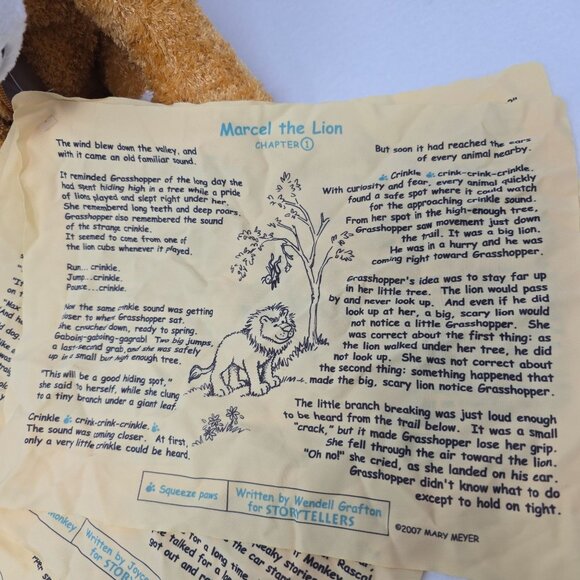 Marcel the Lion
CHAPTER 1
The wind blew down the valley, and
with it came an old familiar sound.
It reminded Grasshopper of the long day she
had spent hiding high in a tree while a pride
of lions played and slept right under her.
She remembered long teeth and deep roars.
Grasshopper also remembered the sound
of the strange crinkle.
It seemed to come from one of
the lion cubs whenever it played.
Run... crinkle.
Jump...crinkle.
Pounce...crinkle.
Now the same crinkle sound was getting
closer to where Grasshopper sat.
She crouched down, ready to spring.
Gaboin-gaboing-gagrab! Two big jumps,
a last-second grab, and she was safely
up in a small but high enough tree.
"This will be a good hiding spot,"
she said to herself, while she clung
to a tiny branch under a giant leaf.
Crinkle crink-crink-crinkle.
The sound was coming closer. At first,
only a very little crinkle could be heard.
But soon it had reached the ears
of every animal nearby.
Crinkle crink-crink-crinkle.
With curiosity and fear, every animal quickly
found a safe spot where it could watch
for the approaching crinkle sound.
From her spot in the high-enough tree,
Grasshopper saw movement just down
the trail. It was a big lion.
He was in a hurry and he was
coming right toward Grasshopper.
Grasshopper's idea was to stay far up
in her little tree. The lion would pass
by and never look up. And even if he did
look up at her, a big, scary lion would
not notice a little Grasshopper. She
was correct about the first thing: as
the lion walked under her tree, he did
not look up. She was not correct about
the second thing: something happened that
made the big, scary lion notice Grasshopper.
The little branch breaking was just loud enough
to be heard from the trail below. It was a small
"crack," but it made Grasshopper lose her grip.
She fell through the air toward the lion.
"Oh no!" she cried, as she landed on his ear.
Grasshopper didn't know what to do
except to hold on tight.
Squeeze paws
Written by Wendell Grafton
for STORYTELLERS
©2007 MARY MEYER
Monkey
Written by Joyce
for STOR
for a long time
sneaky stories
if Monkey Rascal
talked for a long
the car star
got out and re